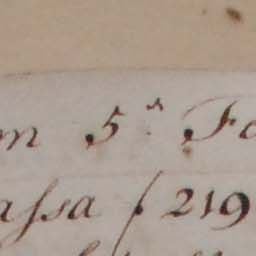 m 5.ª Fo
assa f 219